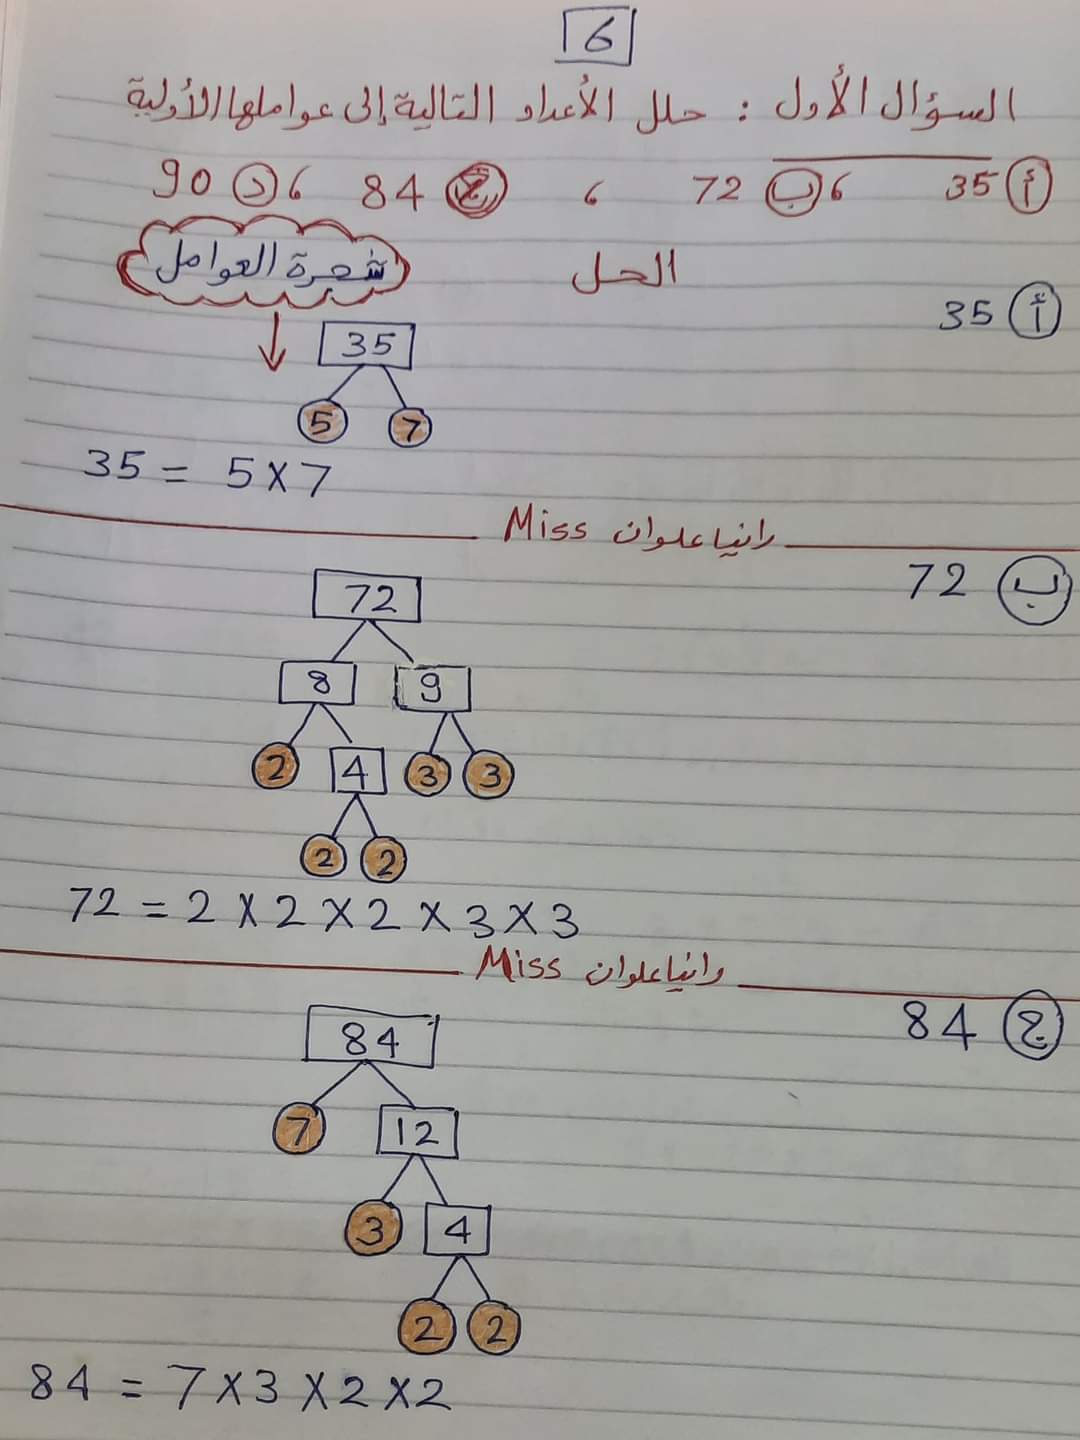 6
السؤال الأول : حلل الأعداد التالية إلى عواملها الأولية
أ 35 ، ب 72 ، ج 84 ، د 90
الحل
شجرة العوامل
أ 35
35
5 7
35 = 5 × 7
Miss رانيا علوان
ب 72
72
8 9
2 4 3 3
2 2
72 = 2 × 2 × 2 × 3 × 3
Miss رانيا علوان
ج 84
84
7 12
3 4
2 2
84 = 7 × 3 × 2 × 2